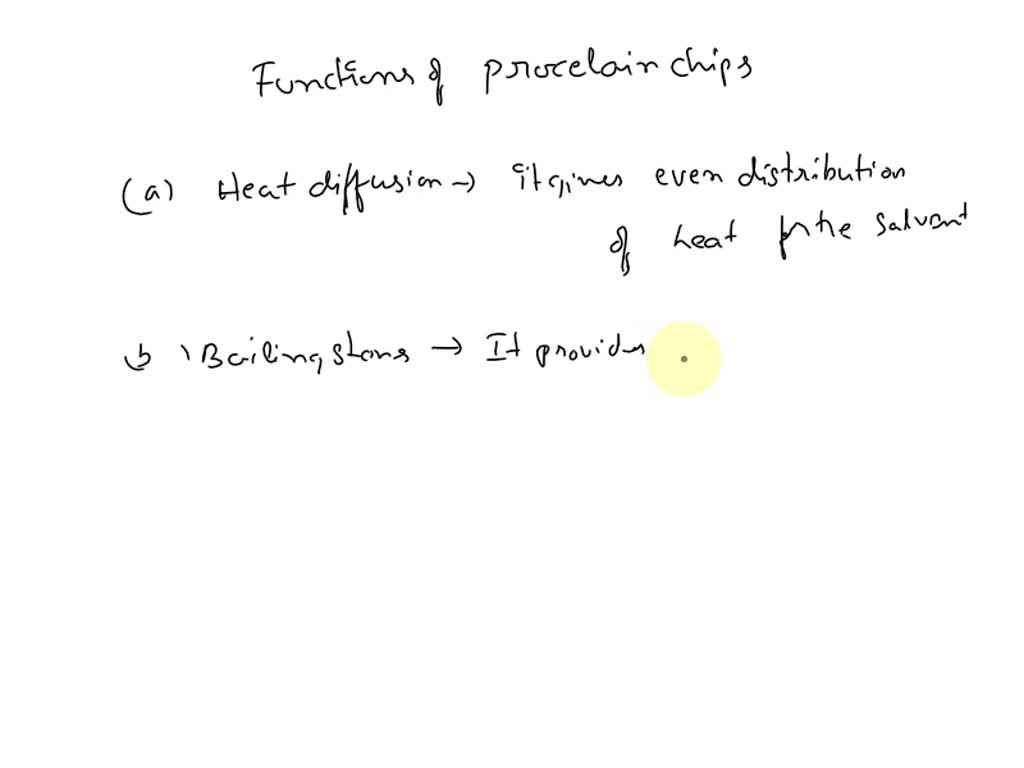 Functions of procelain chips
(a) Heat diffusion → it gives even distribution
of heat for the solvent
b) Boiling stones → It provides